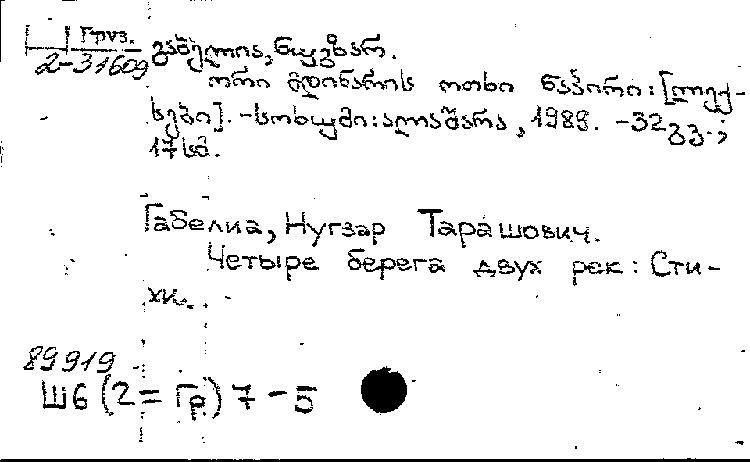 Груз.
2-31609
გაბელია, ნუგზარ.
ორი მდინარის ოთხი ნაპირი: [ლექ-
სები]. - სოხუმი: ალაშარა, 1989. - 32 გვ.;
17 სმ.
Габелиа, Нугзар Тарашович.
Четыре берега двух рек: Сти-
хи.
89919
Ш6(2=Гр)7-5